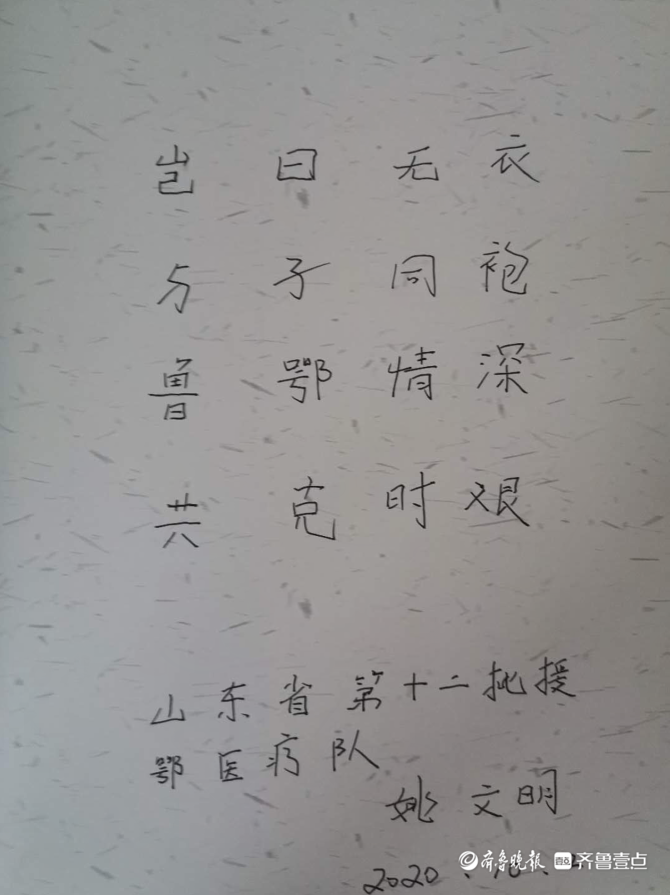 岂曰无衣
与子同袍
鲁鄂情深
共克时艰
山东省第十二批援
鄂医疗队
姚文明
2020.
齐鲁晚报 齐鲁壹点